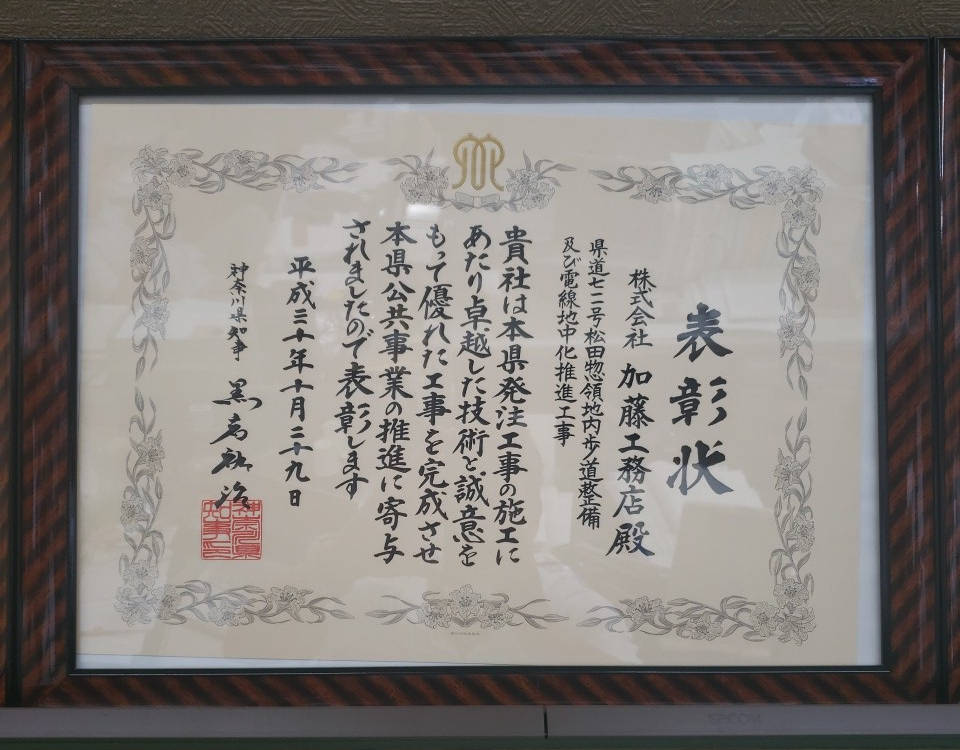 表彰状
株式会社 加藤工務店殿
県道七二号松田惣領地内歩道整備
及び電線地中化推進工事
貴社は本県発注工事の施工に
あたり卓越した技術と誠意を
もって優れた工事を完成させ
本県公共事業の推進に寄与
されましたので表彰します
平成三十年十月二十九日
神奈川県知事 黒岩祐治